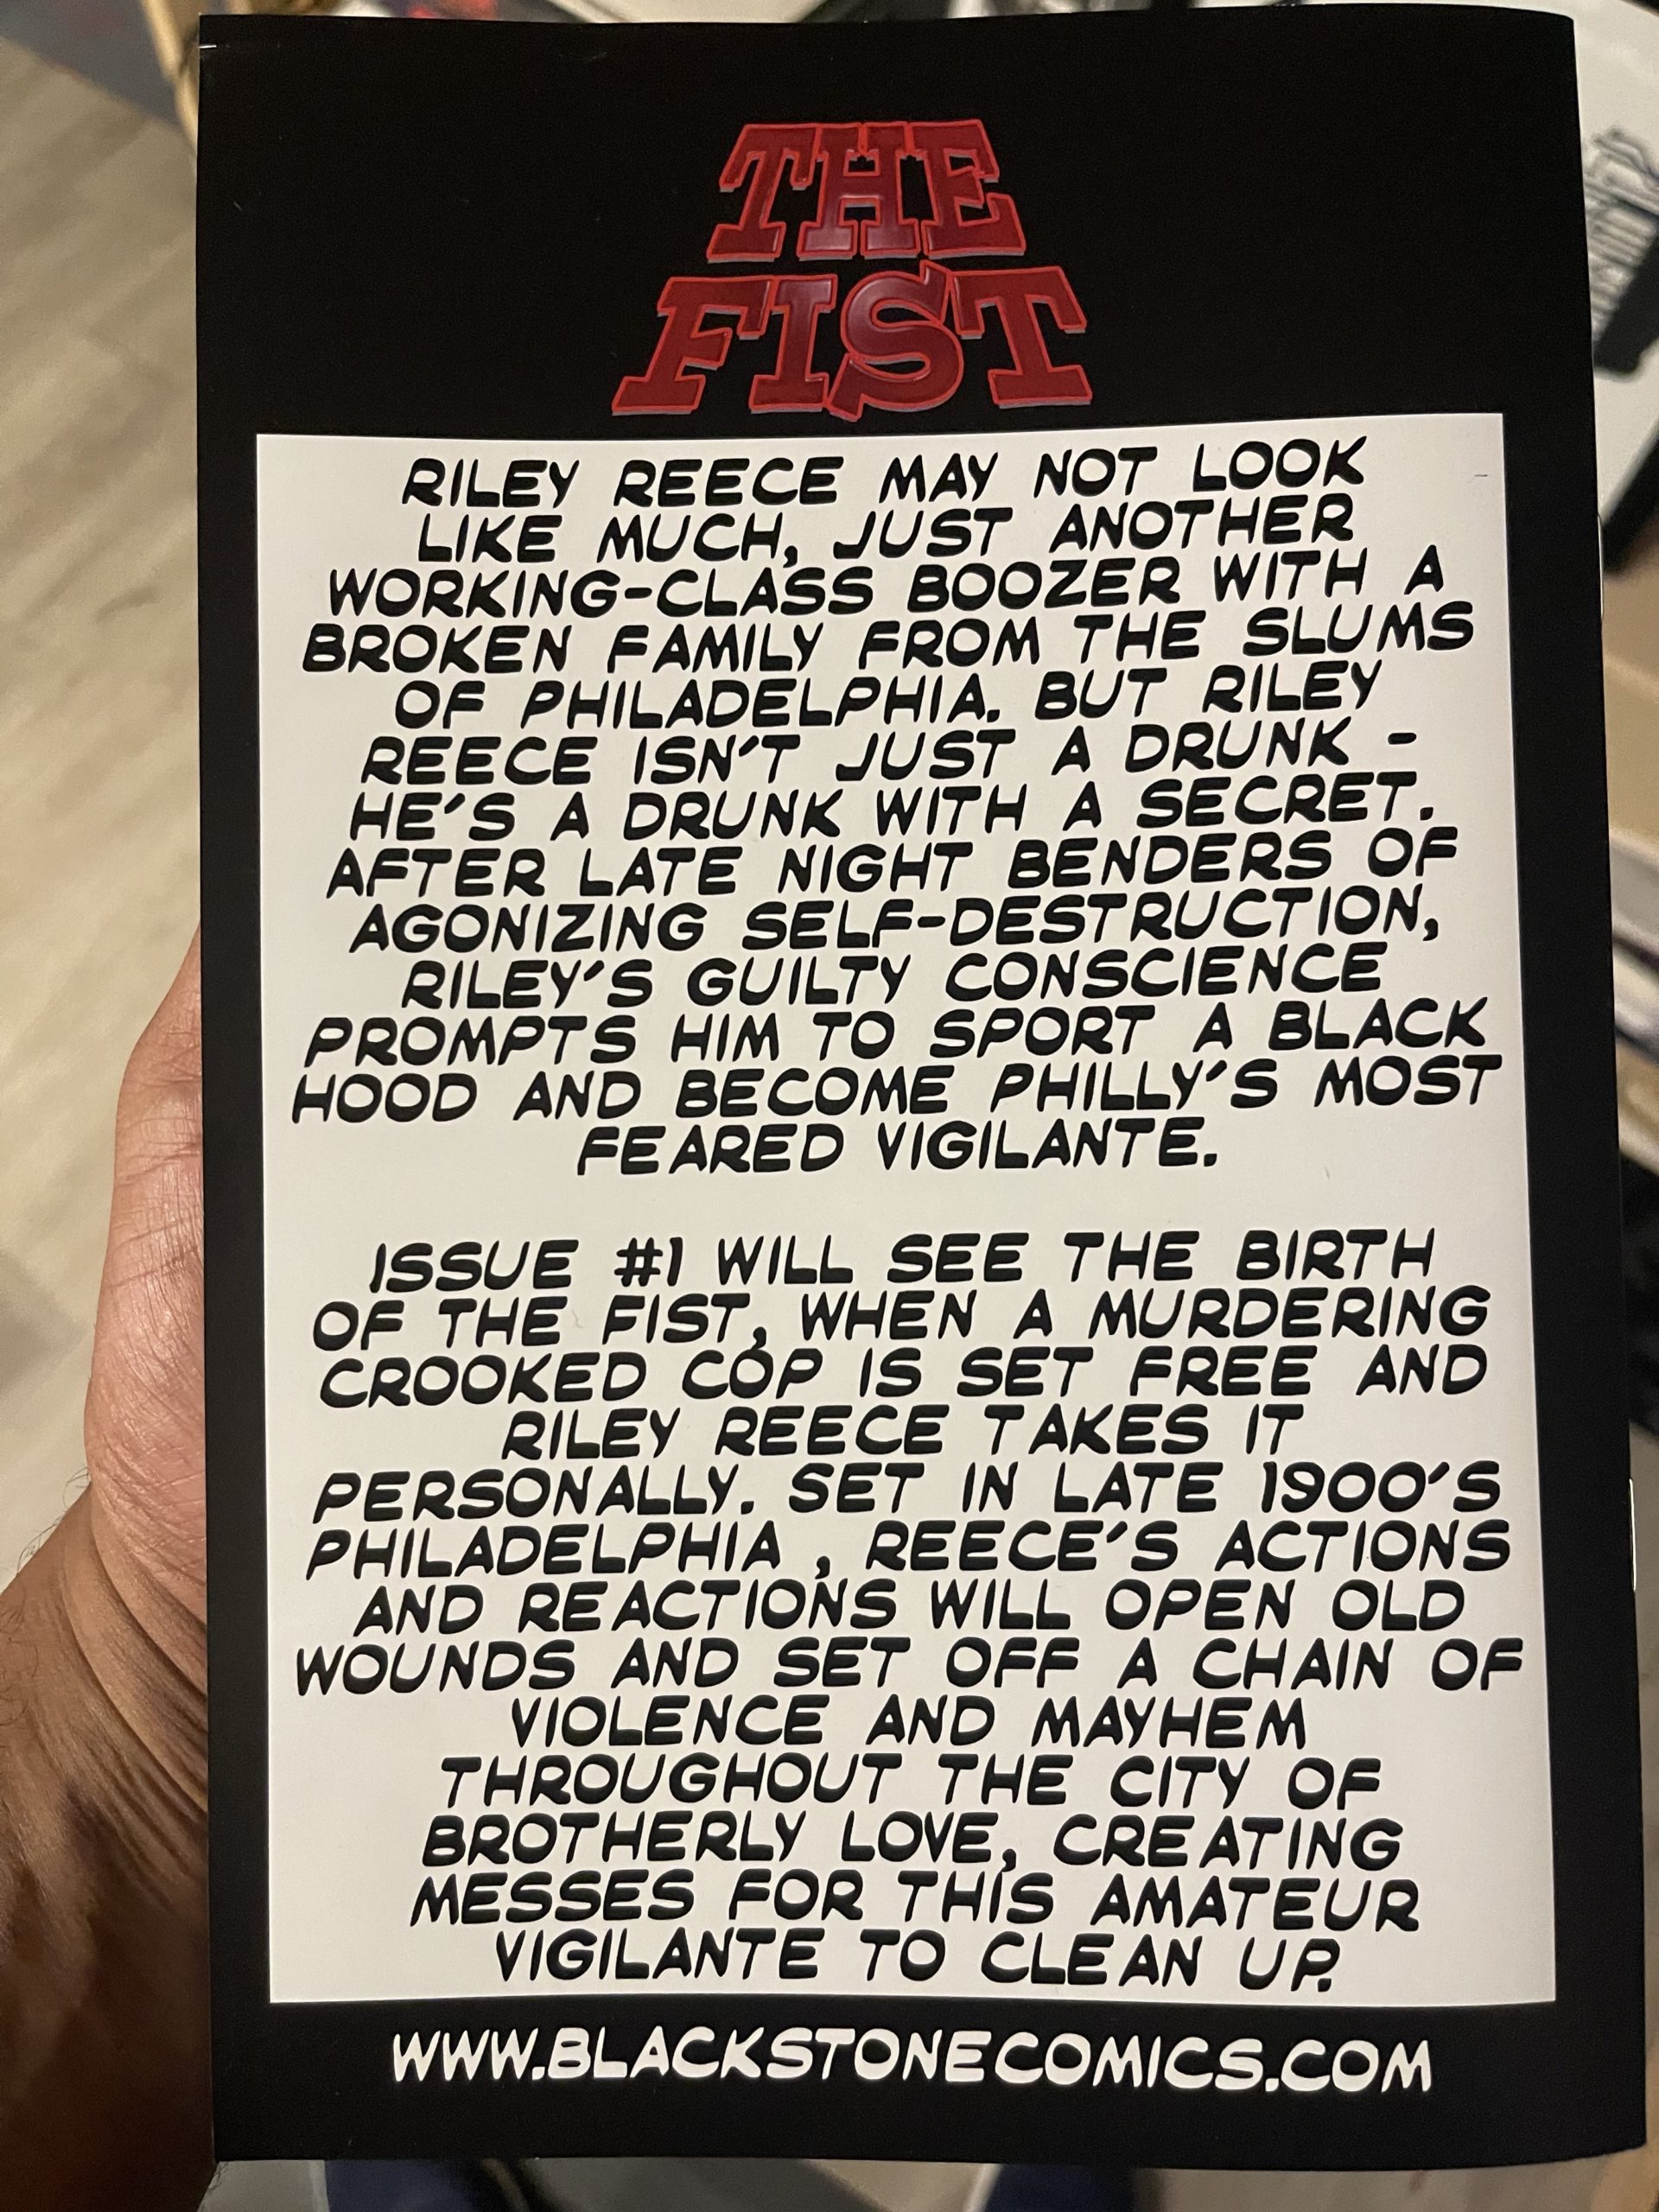 THE
FIST
RILEY REECE MAY NOT LOOK
LIKE MUCH, JUST ANOTHER
WORKING-CLASS BOOZER WITH A
BROKEN FAMILY FROM THE SLUMS
OF PHILADELPHIA. BUT RILEY
REECE ISN'T JUST A DRUNK -
HE'S A DRUNK WITH A SECRET.
AFTER LATE NIGHT BENDERS OF
AGONIZING SELF-DESTRUCTION,
RILEY'S GUILTY CONSCIENCE
PROMPTS HIM TO SPORT A BLACK
HOOD AND BECOME PHILLY'S MOST
FEARED VIGILANTE.
ISSUE #1 WILL SEE THE BIRTH
OF THE FIST, WHEN A MURDERING
CROOKED COP IS SET FREE AND
RILEY REECE TAKES IT
PERSONALLY. SET IN LATE 1900'S
PHILADELPHIA , REECE'S ACTIONS
AND REACTIONS WILL OPEN OLD
WOUNDS AND SET OFF A CHAIN OF
VIOLENCE AND MAYHEM
THROUGHOUT THE CITY OF
BROTHERLY LOVE, CREATING
MESSES FOR THIS AMATEUR
VIGILANTE TO CLEAN UP.
WWW.BLACKSTONECOMICS.COM